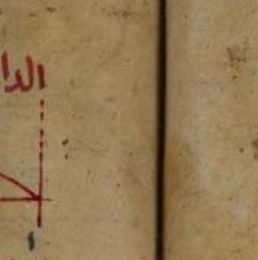 الدا